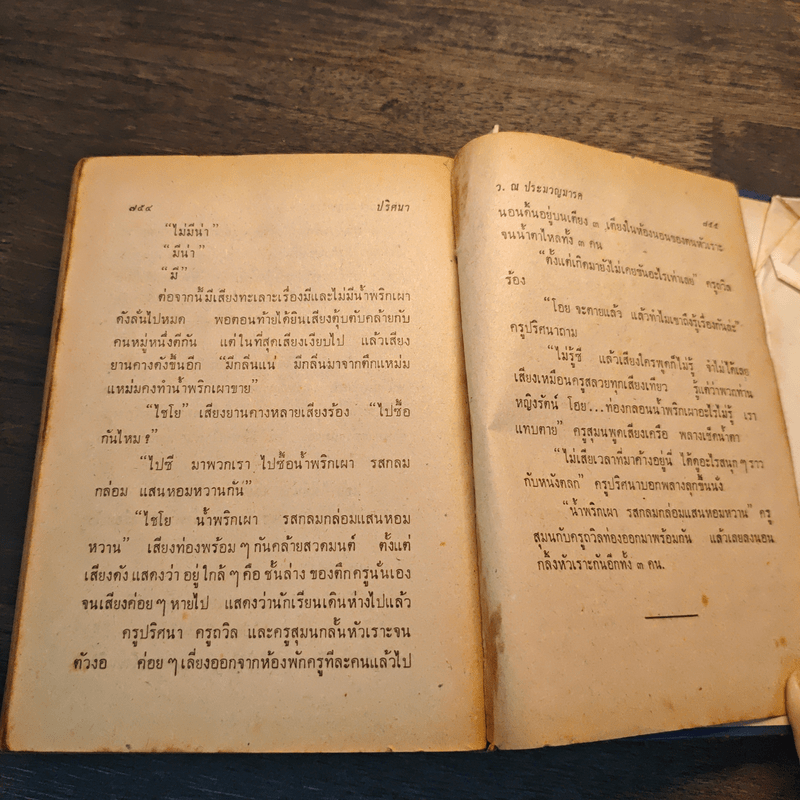 ๗๕๔ ปริศนา
“ไม่มีน่า”
“มีน่า”
“มี”
ต่อจากนี้มีเสียงทะเลาะเรื่องมีและไม่มีน้ำพริกเผา
ดังลั่นไปหมด พอตอนท้ายได้ยินเสียงตุ้บตับคล้ายกับ
คนหมู่หนึ่งตีกัน แต่ในที่สุดเสียงเงียบไป แล้วเสียง
ยานคางดังขึ้นอีก “มีกลิ่นแน่ มีกลิ่นมาจากตึกแหม่ม
แหม่มคงทำน้ำพริกเผาขาย”
“ไชโย” เสียงยานคางหลายเสียงร้อง “ไปซื้อ
กันไหม?”
“ไปซี มาพวกเรา ไปซื้อน้ำพริกเผา รสกลม
กล่อม แสนหอมหวานกัน”
“ไชโย น้ำพริกเผา รสกลมกล่อมแสนหอม
หวาน” เสียงท่องพร้อมๆกันคล้ายสวดมนต์ ตั้งแต่
เสียงดัง แสดงว่า อยู่ใกล้ๆคือ ชั้นล่าง ของตึกครูนั่นเอง
จนเสียงค่อยๆหายไป แสดงว่านักเรียนเดินห่างไปแล้ว
ครูปริศนา ครูถวิล และครูสุมนกลั้นหัวเราะจน
ตัวงอ ค่อยๆเลี่ยงออกจากห้องพักครูทีละคนแล้วไป
ว. ณ ประมวญมารค ๘๕๕
นอนดิ้นอยู่บนเตียง ๓ เตียงในห้องนอนของตนหัวเราะ
จนน้ำตาไหลทั้ง ๓ คน
“ตั้งแต่เกิดมายังไม่เคยขันอะไรเท่าเลย” ครูถวิล
ร้อง
“โอย จะตายแล้ว แล้วทำไมเขาถึงรู้เรื่องกันล่ะ”
ครูปริศนาถาม
“ไม่รู้ซี แล้วเสียงใครพูดก็ไม่รู้ จำไม่ได้เลย
เสียงเหมือนครูสลวยทุกเสียงเทียว รู้แต่ว่าพวกท่าน
หญิงรัตน์ โอย...ท่องกลอนน้ำพริกเผาอะไรไม่รู้ เรา
แทบตาย” ครูสุมนพูดเสียงเครือ พลางเช็ดน้ำตา
“ไม่เสียเวลาที่มาค้างอยู่นี่ ได้ดูอะไรสนุกๆราว
กับหนังตลก” ครูปริศนาบอกพลางลุกขึ้นนั่ง
“น้ำพริกเผา รสกลมกล่อมแสนหอมหวาน” ครู
สุมนกับครูถวิลท่องออกมาพร้อมกัน แล้วเลยลงนอน
กลิ้งหัวเราะกันอีกทั้ง ๓ คน.